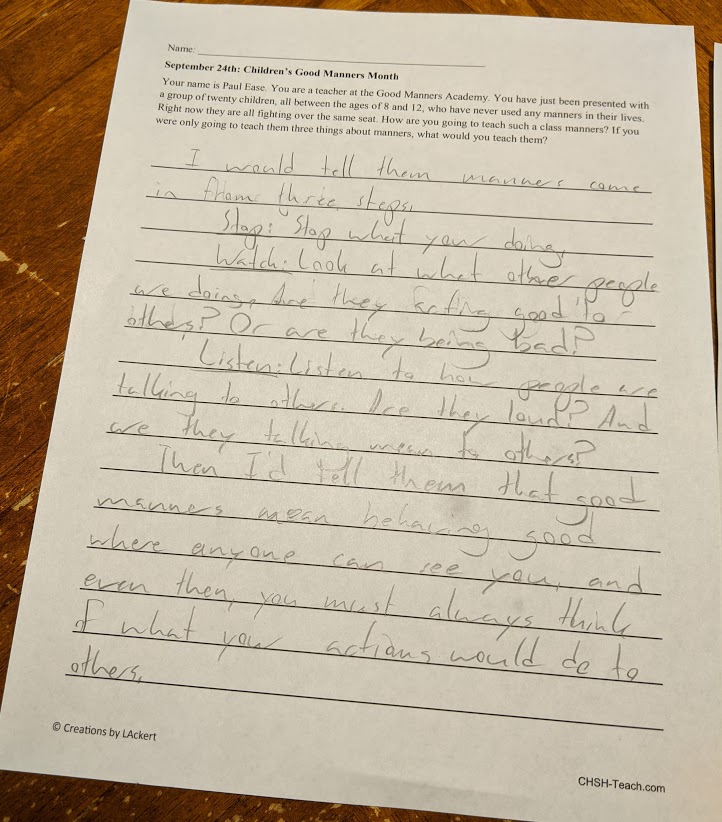 Name:
September 24th: Children's Good Manners Month
Your name is Paul Ease. You are a teacher at the Good Manners Academy. You have just been presented with
a group of twenty children, all between the ages of 8 and 12, who have never used any manners in their lives.
Right now they are all fighting over the same seat. How are you going to teach such a class manners? If you
were only going to teach them three things about manners, what would you teach them?
I would tell them manners come
in three steps.
Stop: Stop what your doing.
Watch: Look at what other people
are doing. Are they acting good to
others? Or are they being bad?
Listen: Listen to how people are
talking to others. Are they loud? And
are they talking mean to others?
Then I'd tell them that good
manners mean behaving good
where anyone can see you, and
even then, you must always think
of what your actions would do to
others.
© Creations by LAckert
CHSH-Teach.com